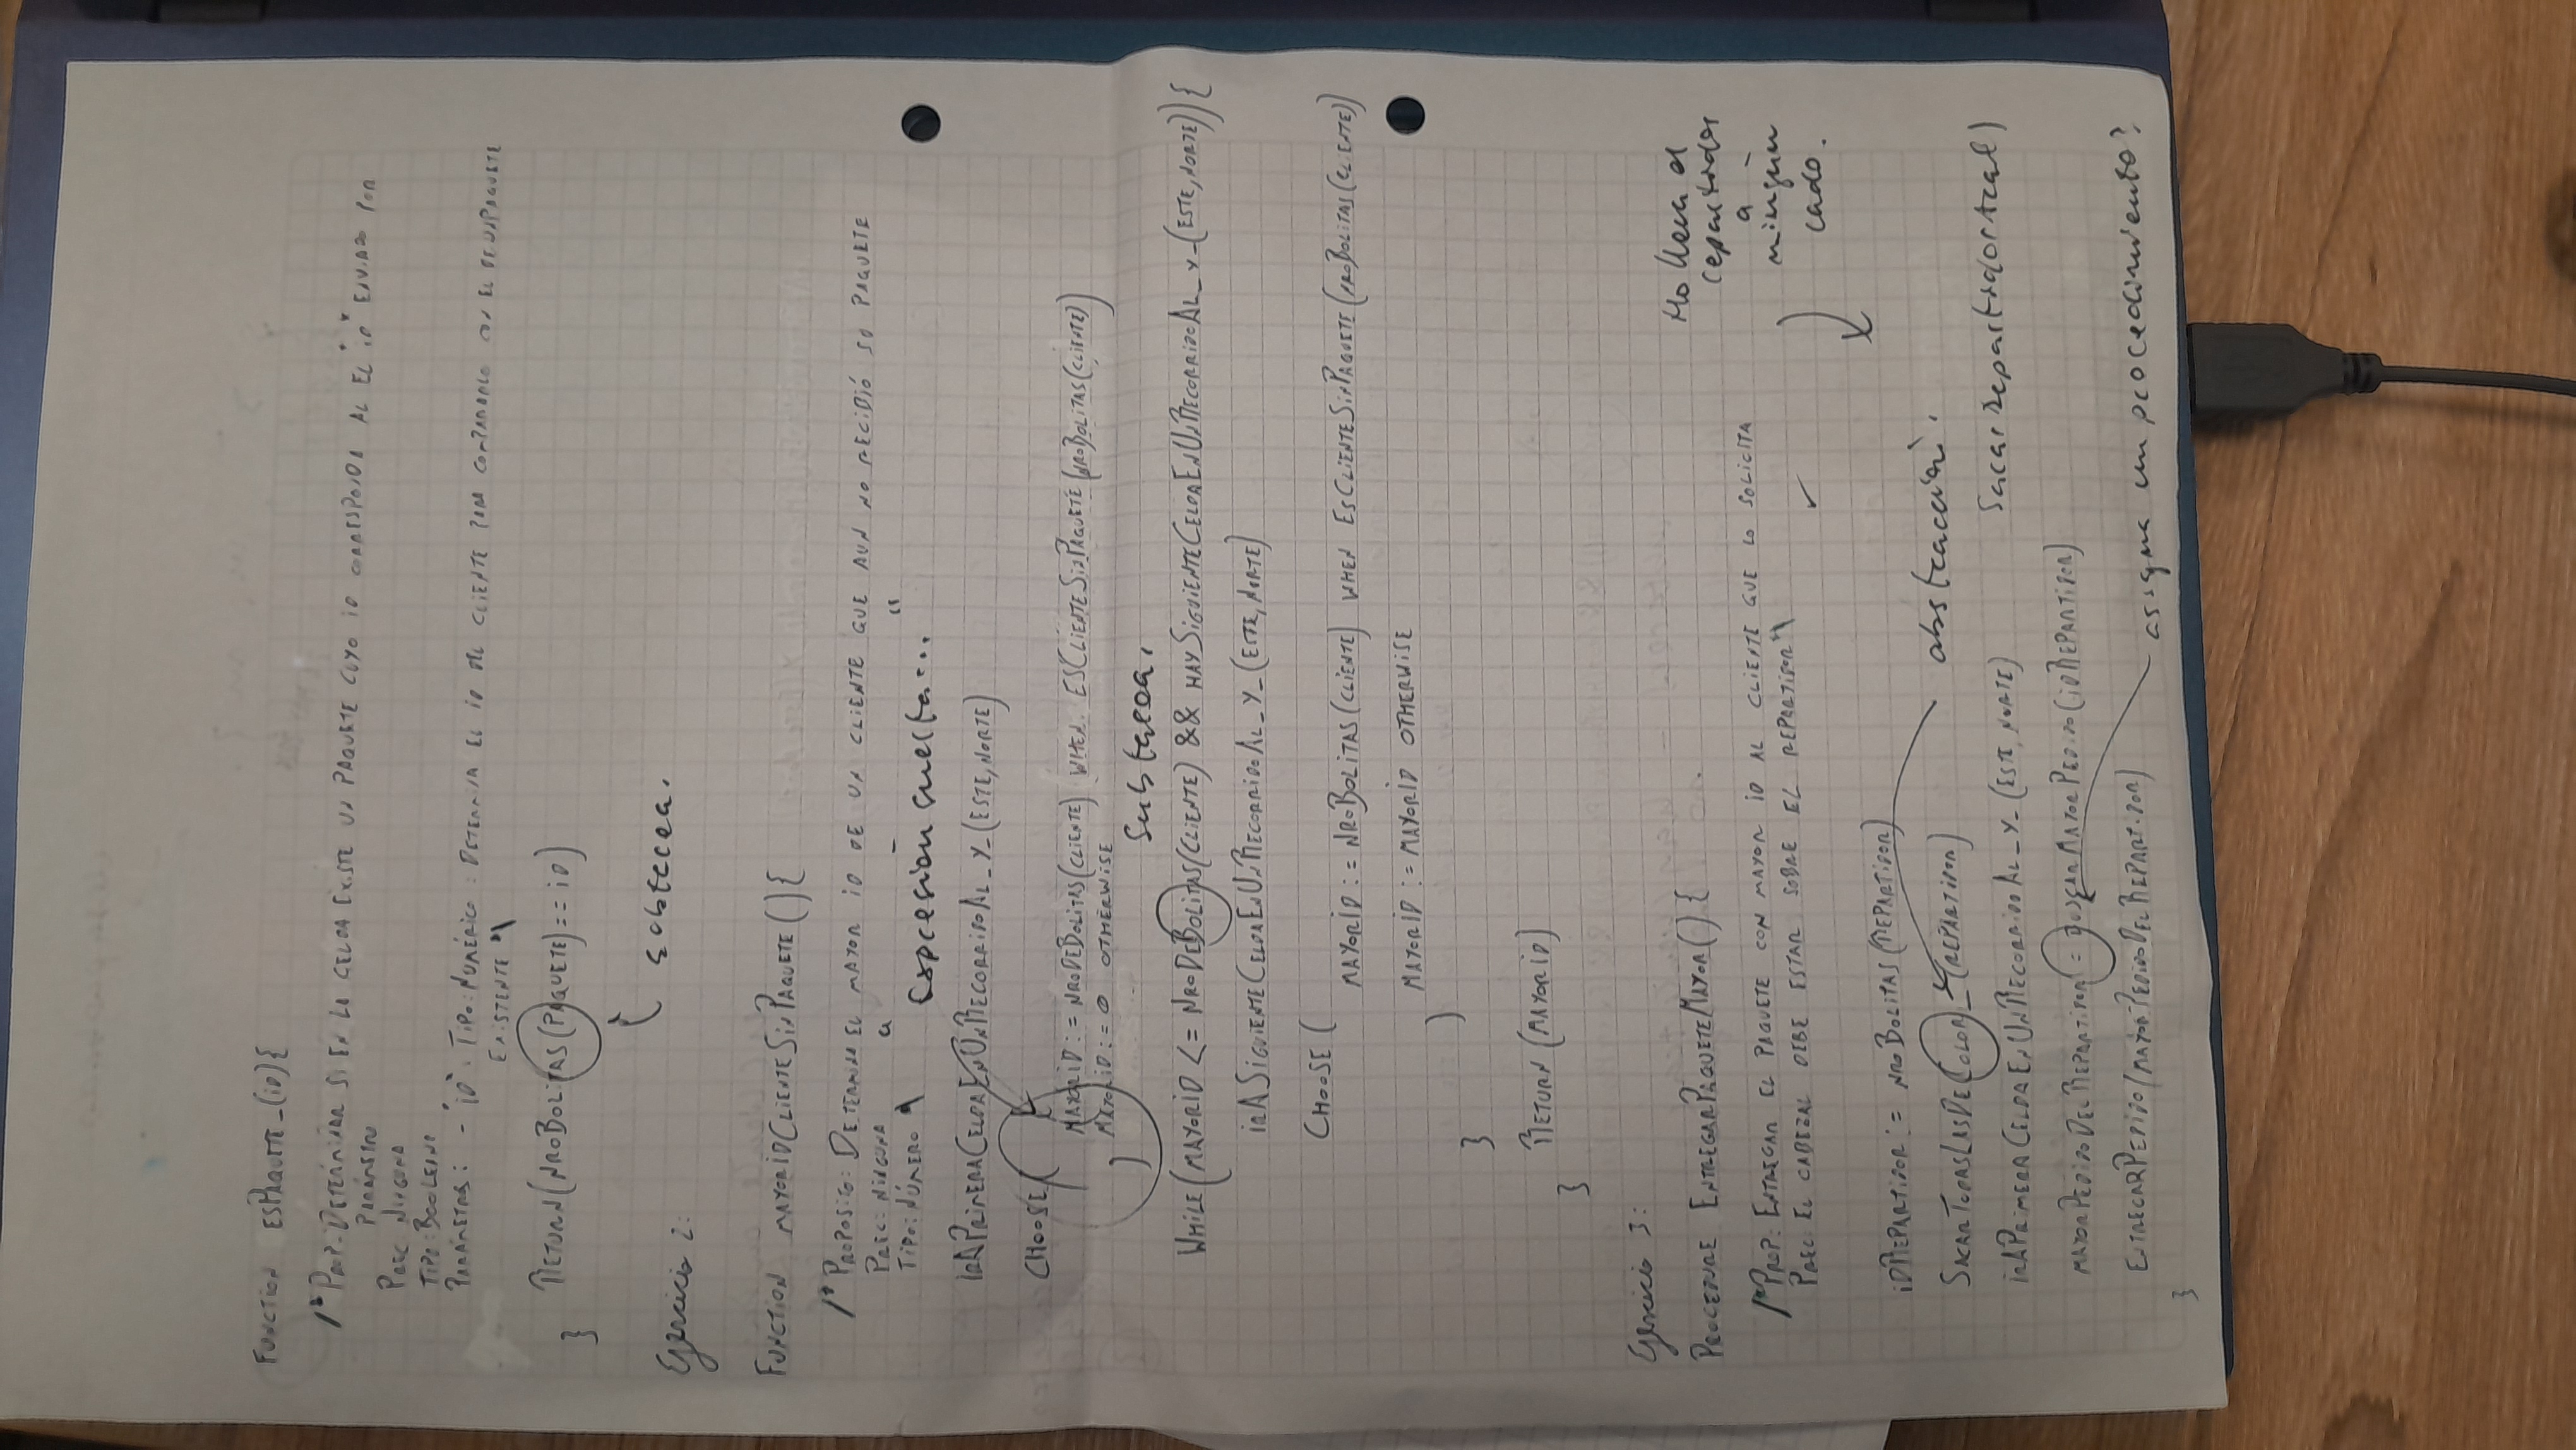 FUNCTION ESPAQUETE_(ID){
/* PROP: DETERMINAR SI EN LA CELDA EXISTE UN PAQUETE CUYO ID CORRESPONDA AL EL "ID" ENVIADO POR
PARÁMETRO
PREC: NINGUNA
TIPO: BOOLEANO
PARÁMETROS: - "ID": TIPO: NUMÉRICO: DETERMINA EL ID DEL CLIENTE PARA COMPARARLO CON EL DE UN PAQUETE
EXISTENTE */
RETURN(NROBOLITAS(PAQUETE)==ID)
}
subtarea.
Ejercicio 2:
FUNCTION MAYORIDCLIENTESINPAQUETE(){
/* PROPOSITO: DETERMINA EL MAYOR ID DE UN CLIENTE QUE AUN NO RECIBIÓ SU PAQUETE
PREC: NINGUNA
TIPO: NÚMERO */
"Expresión suelta..."
IRAPRIMERACELDAENUNRECORRIDOAL_Y_(ESTE, NORTE)
CHOOSE(
MAYORID := NRODEBOLITAS(CLIENTE) WHEN ESCLIENTESINPAQUETE(NROBOLITAS(CLIENTE))
MAYORID := 0 OTHERWISE
)
Subtarea.
WHILE(MAYORID <= NRODEBOLITAS(CLIENTE) && HAYSIGUIENTECELDAENUNRECORRIDOAL_Y_(ESTE, NORTE)){
IRASIGUIENTECELDAENUNRECORRIDOAL_Y_(ESTE, NORTE)
CHOOSE (
MAYORID := NROBOLITAS(CLIENTE) WHEN ESCLIENTESINPAQUETE(NROBOLITAS(CLIENTE))
MAYORID := MAYORID OTHERWISE
)
}
RETURN (MAYORID)
}
Ejercicio 3:
PROCEDURE ENTREGARPAQUETEMAYOR(){
No lleva al
repartidor
a
ningún
lado.
/* PROP: ENTREGAR EL PAQUETE CON MAYOR ID AL CLIENTE QUE LO SOLICITA
PREC: EL CABEZAL DEBE ESTAR SOBRE EL REPARTIDOR */ ✓
IDREPARTIDOR := NROBOLITAS(REPARTIDOR)
abstracción.
SACARTODASLASDECOLOR_(REPARTIDOR)
SacarRepartidorAcá()
IRAPRIMERACELDAENUNRECORRIDOAL_Y_(ESTE, NORTE)
MAYORPEDIDODELREPARTIDOR = BUSCARMAYORPEDIDO(IDREPARTIDOR)
ENTREGARPEDIDO(MAYORPEDIDODELREPARTIDOR)
asigna un procedimiento?
}